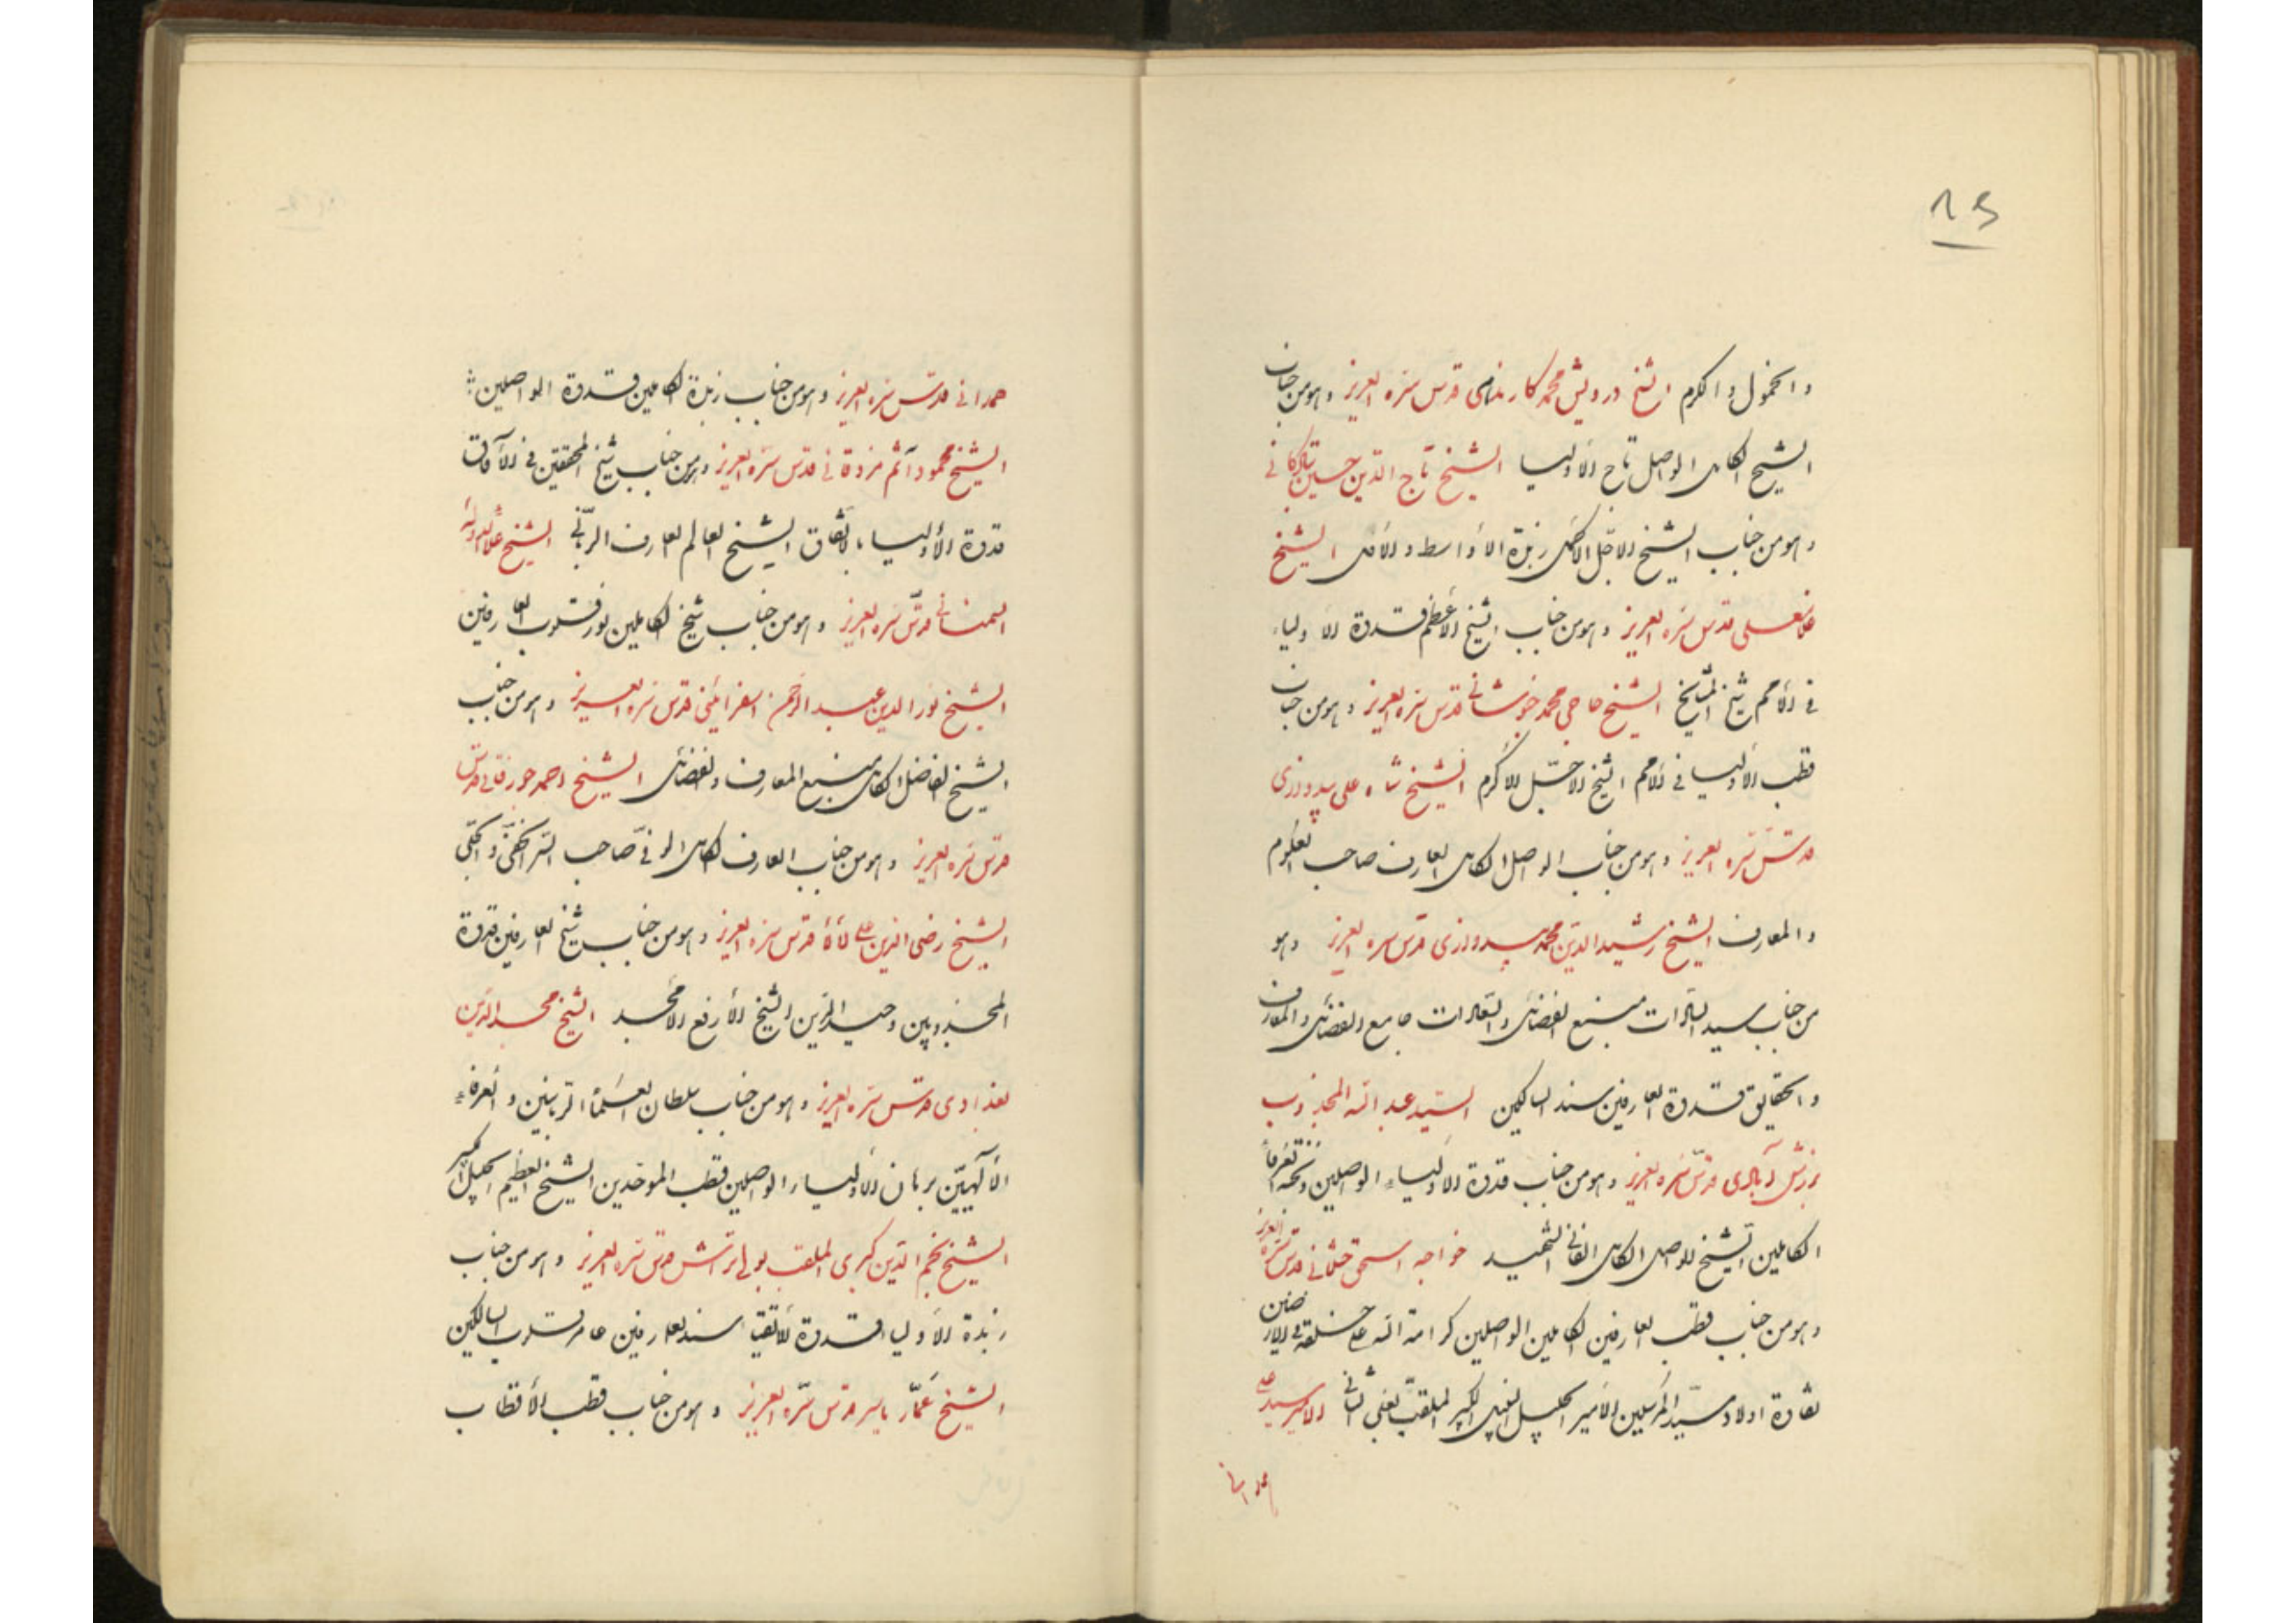 والخمول والکرم الشیخ درویش محمد کارندهی قدس سره العزیز وهو من جناب
الشیخ الکامل الواصل تاج الأولیا الشیخ تاج الدین حسین تبادکانی
وهو من جناب الشیخ الاجل الاکمل زبدة الاواسط والافاضل الشیخ
غلامعلی قدس سره العزیز وهو من جناب الشیخ الأعظم قدوة الاولیاء
فی الأمم شیخ المشایخ الشیخ حاجی محمد خبوشانی قدس سره العزیز وهو من جناب
قطب الأولیا فی الأمم الشیخ الاجل الاکرم الشیخ شاه علی بیدوازی
قدس سره العزیز وهو من جناب الواصل الکامل العارف صاحب العلوم
والمعارف الشیخ رشید الدین محمد بیدوازی قدس سره العزیز وهو
من جناب سید السادات منبع الفضائل والسعادات جامع الفضائل والمعارف
والحقایق قدوة العارفین سند السالکین السید عبد الله المجذوب
برزش آبادی قدس سره العزیز وهو من جناب قدوة الاولیاء الواصلین العرفاء
الکاملین الشیخ الواصل الکامل الفانی الشهید خواجه اسحق ختلانی قدس سره العزیز
وهو من جناب قطب العارفین الکاملین الواصلین کرامة الله علی خلقه فی الارضین
نقاوة اولاد سید المرسلین الامیر الجلیل النبیل الکبیر الملقب بعلی الثانی الامیر سید علی
همدانی
همدانی قدس سره العزیز وهو من جناب زبدة الکاملین قدوة الواصلین
الشیخ محمود آثم مزدقانی قدس سره العزیز وهو من جناب شیخ المحققین فی الآفاق
قدوة الأولیاء بالاتفاق الشیخ العالم العارف الربانی الشیخ علاء الدوله
السمنانی قدس سره العزیز وهو من جناب شیخ الکاملین نور قلوب العارفین
الشیخ نور الدین عبد الرحمن اسفراینی قدس سره العزیز وهو من جناب
الشیخ الفاضل الکامل منبع المعارف والفضائل الشیخ احمد جورقانی قدس
قدس سره العزیز وهو من جناب العارف الکامل الوفی صاحب السر الخفی والجلی
الشیخ رضی الدین علی لالا قدس سره العزیز وهو من جناب شیخ العارفین قدوة
المجذوبین وحید الدین الشیخ الأرفع الأمجد الشیخ مجد الدین
بغدادی قدس سره العزیز وهو من جناب سلطان العلماء الربانیین والعرفاء
الألهیین برهان الأولیاء الواصلین قطب الموحدین الشیخ العظیم الجلیل الکبیر
الشیخ نجم الدین کبری الملقب بولی تراش قدس سره العزیز وهو من جناب
زبدة الأولیا قدوة الأتقیا سند العارفین عامر قلوب السالکین
الشیخ عمار یاسر قدس سره العزیز وهو من جناب قطب الأقطاب